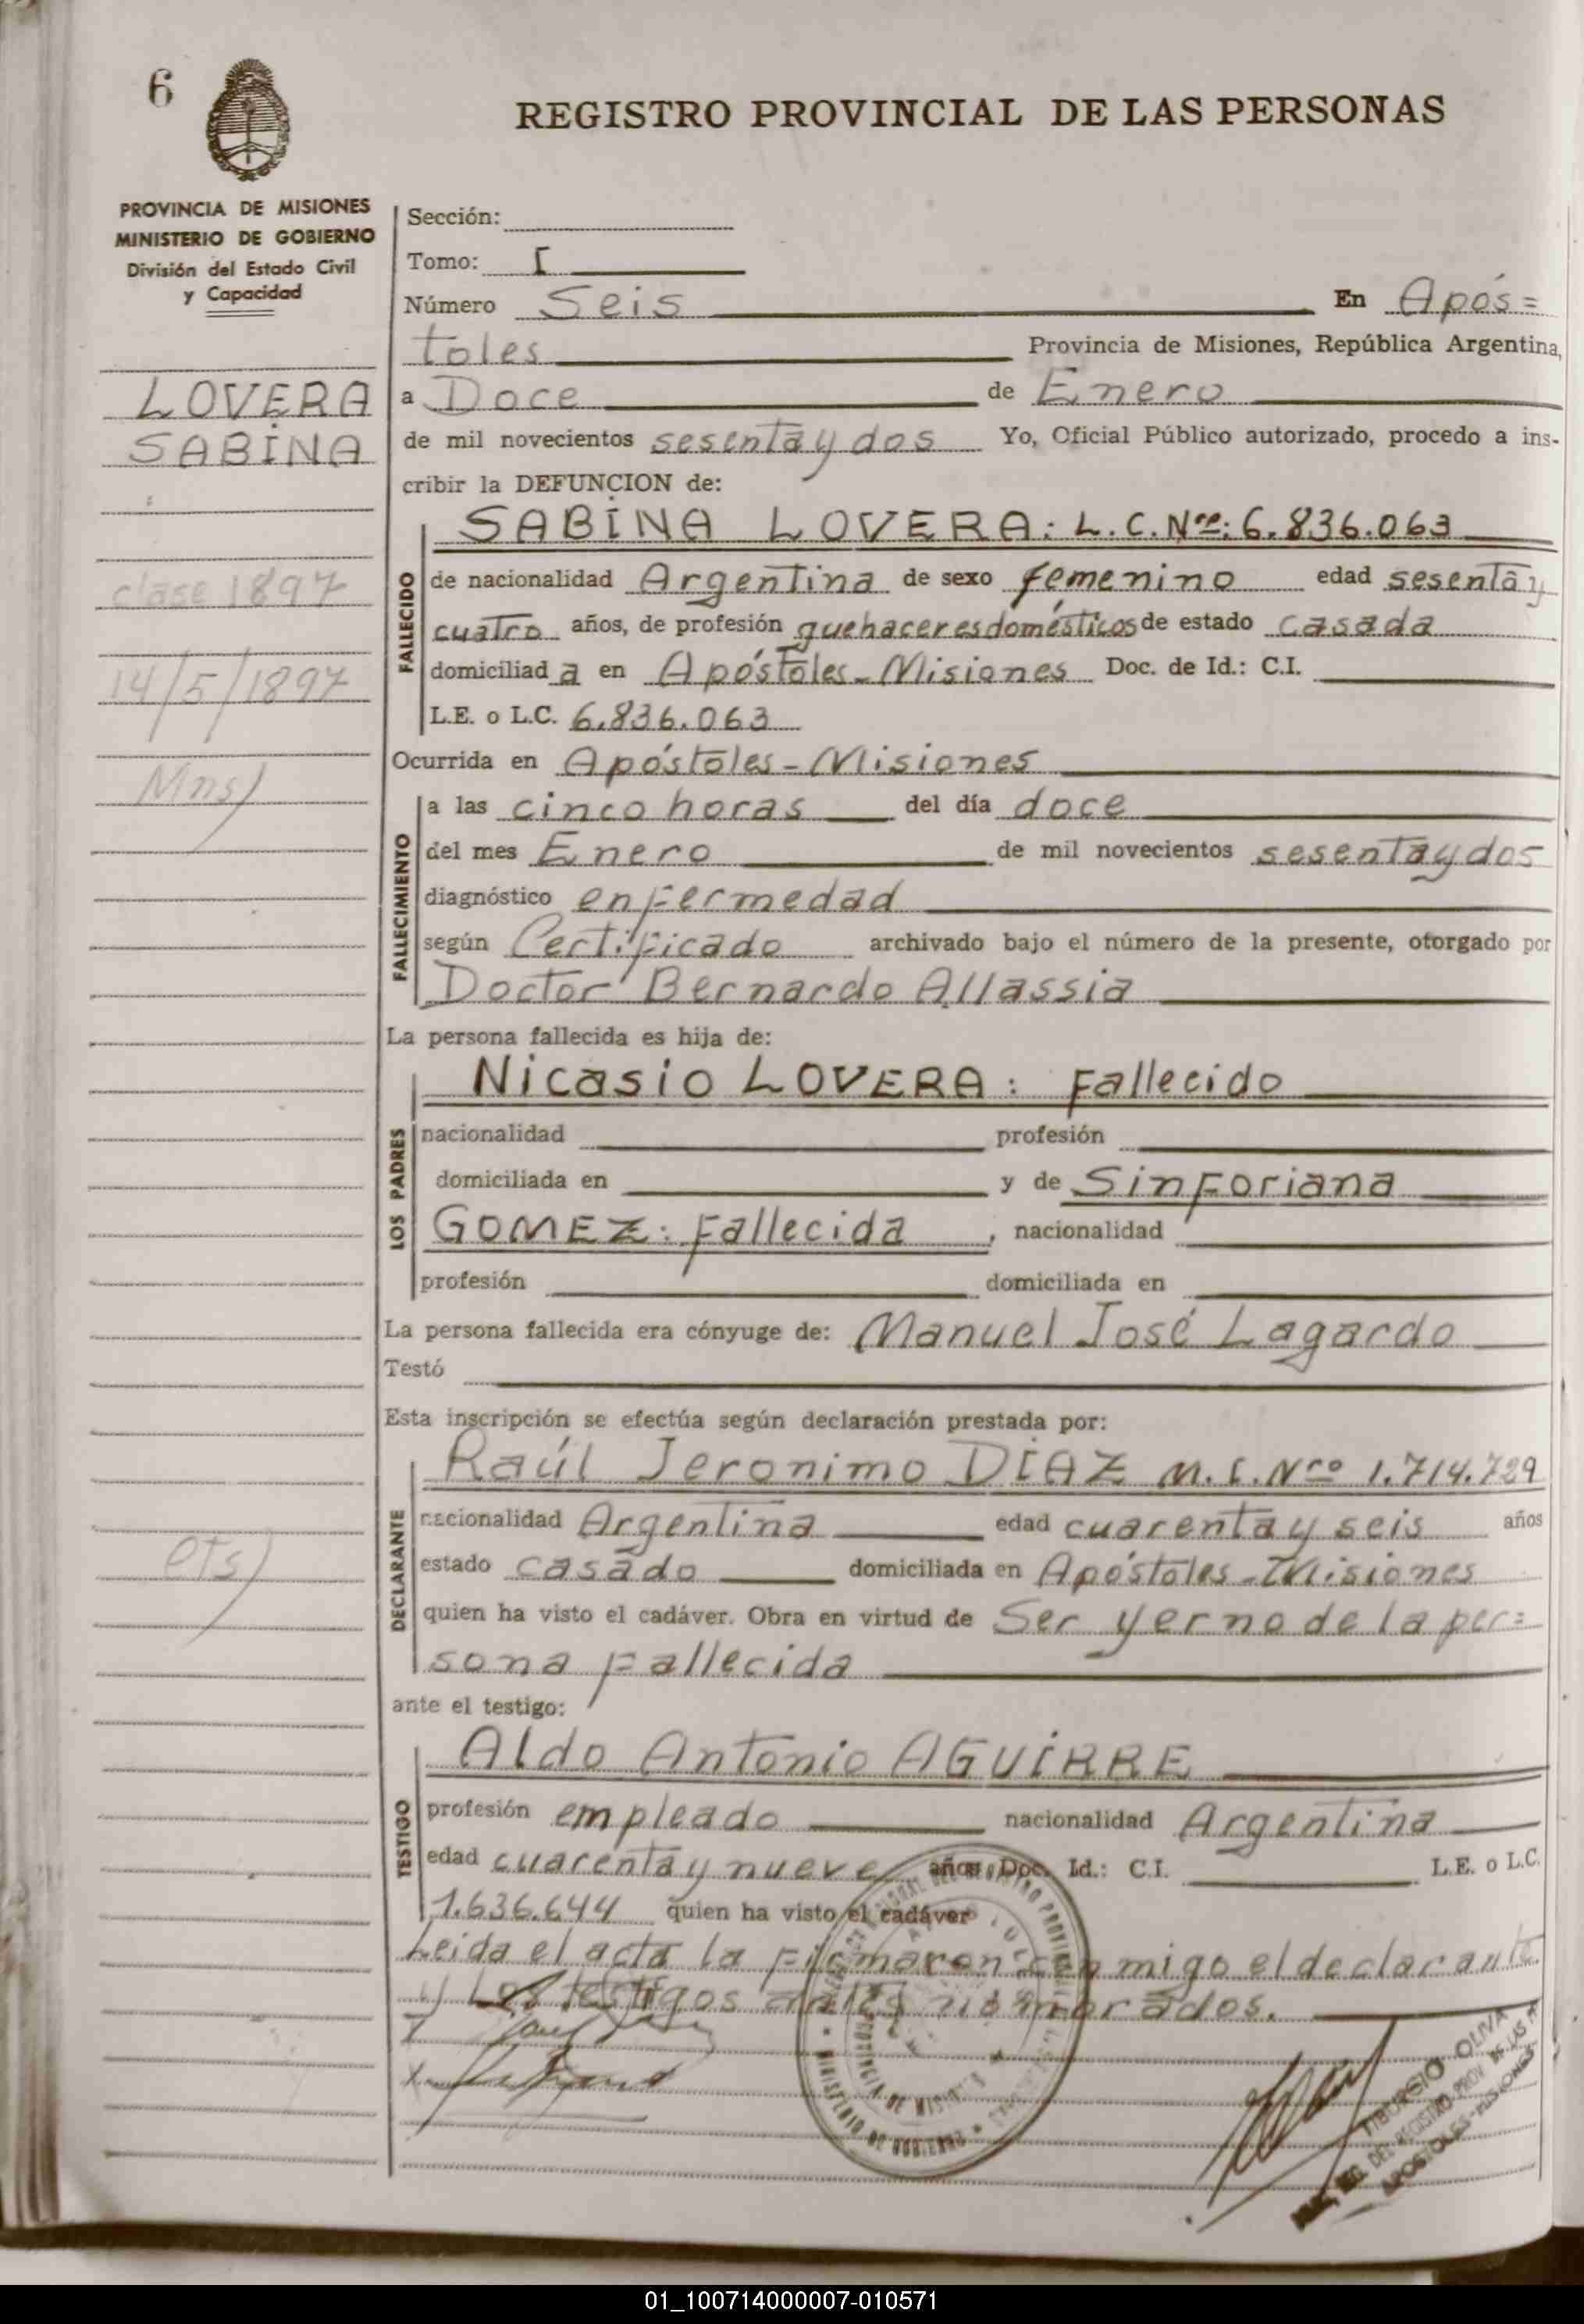 6
REGISTRO PROVINCIAL DE LAS PERSONAS
PROVINCIA DE MISIONES
MINISTERIO DE GOBIERNO
División del Estado Civil
y Capacidad
LOVERA
SABINA
clase 1897
14/5/1897
Mns)
Ots)
Sección:
Tomo: I
Número Seis En Após=
toles Provincia de Misiones, República Argentina,
a Doce de Enero
de mil novecientos sesenta y dos Yo, Oficial Público autorizado, procedo a ins-
cribir la DEFUNCION de:
SABINA LOVERA: L.C.Nro: 6.836.063
FALLECIDO
de nacionalidad Argentina de sexo femenino edad sesenta y
cuatro años, de profesión quehaceres domésticos de estado casada
domiciliad a en Apóstoles-Misiones Doc. de Id.: C.I.
L.E. o L.C. 6.836.063
Ocurrida en Apóstoles-Misiones
FALLECIMIENTO
a las cinco horas del día doce
del mes Enero de mil novecientos sesenta y dos
diagnóstico enfermedad
según Certificado archivado bajo el número de la presente, otorgado por
Doctor Bernardo Allassia
La persona fallecida es hija de:
Nicasio LOVERA: Fallecido
LOS PADRES
nacionalidad profesión
domiciliada en y de Sinforiana
GOMEZ: Fallecida, nacionalidad
profesión domiciliada en
La persona fallecida era cónyuge de: Manuel José Lagardo
Testó
Esta inscripción se efectúa según declaración prestada por:
Raúl Jeronimo DIAZ M.I.Nro 1.714.729
DECLARANTE
nacionalidad Argentina edad cuarenta y seis años
estado casado domiciliada en Apóstoles-Misiones
quien ha visto el cadáver. Obra en virtud de Ser yerno de la per=
sona fallecida
ante el testigo:
Aldo Antonio AGUIRRE
TESTIGO
profesión empleado nacionalidad Argentina
edad cuarenta y nueve años Doc. Id.: C.I. L.E. o L.C.
1.636.644 quien ha visto el cadáver
Leida el acta la firmaron conmigo el declarante
y Los testigos antes nombrados.
TIBURSIO OLIVA
REG. DEL REGISTRO PROV. DE LAS P.
APOSTOLES-MISIONES
01_100714000007-010571